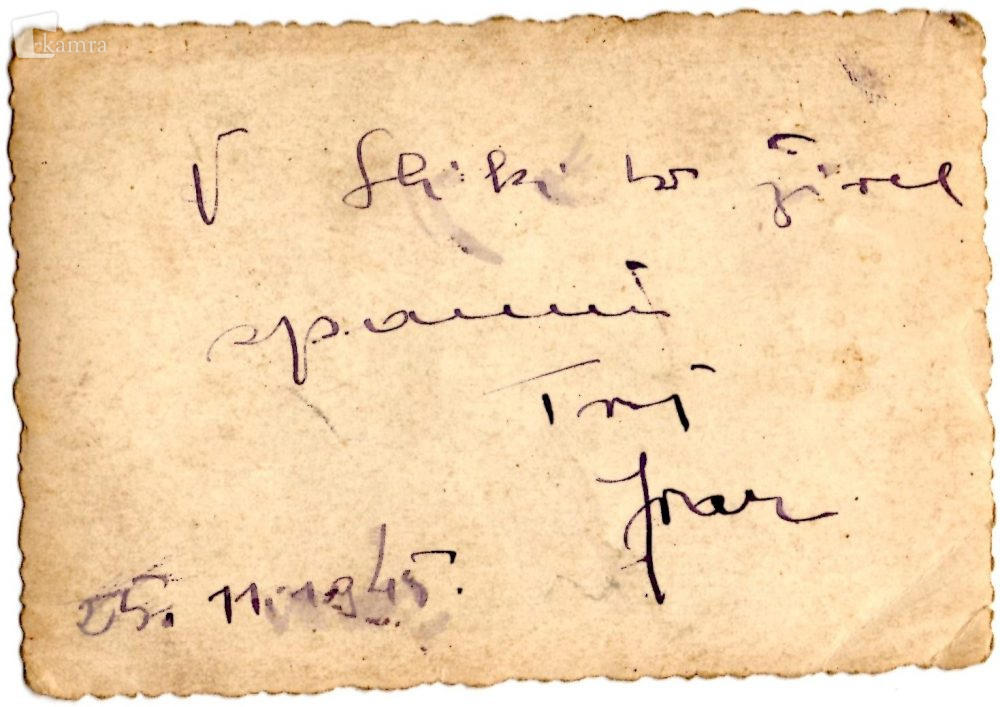 kamra
V sliki bo živel
spomin
Tvoj
25. 11. 1945.